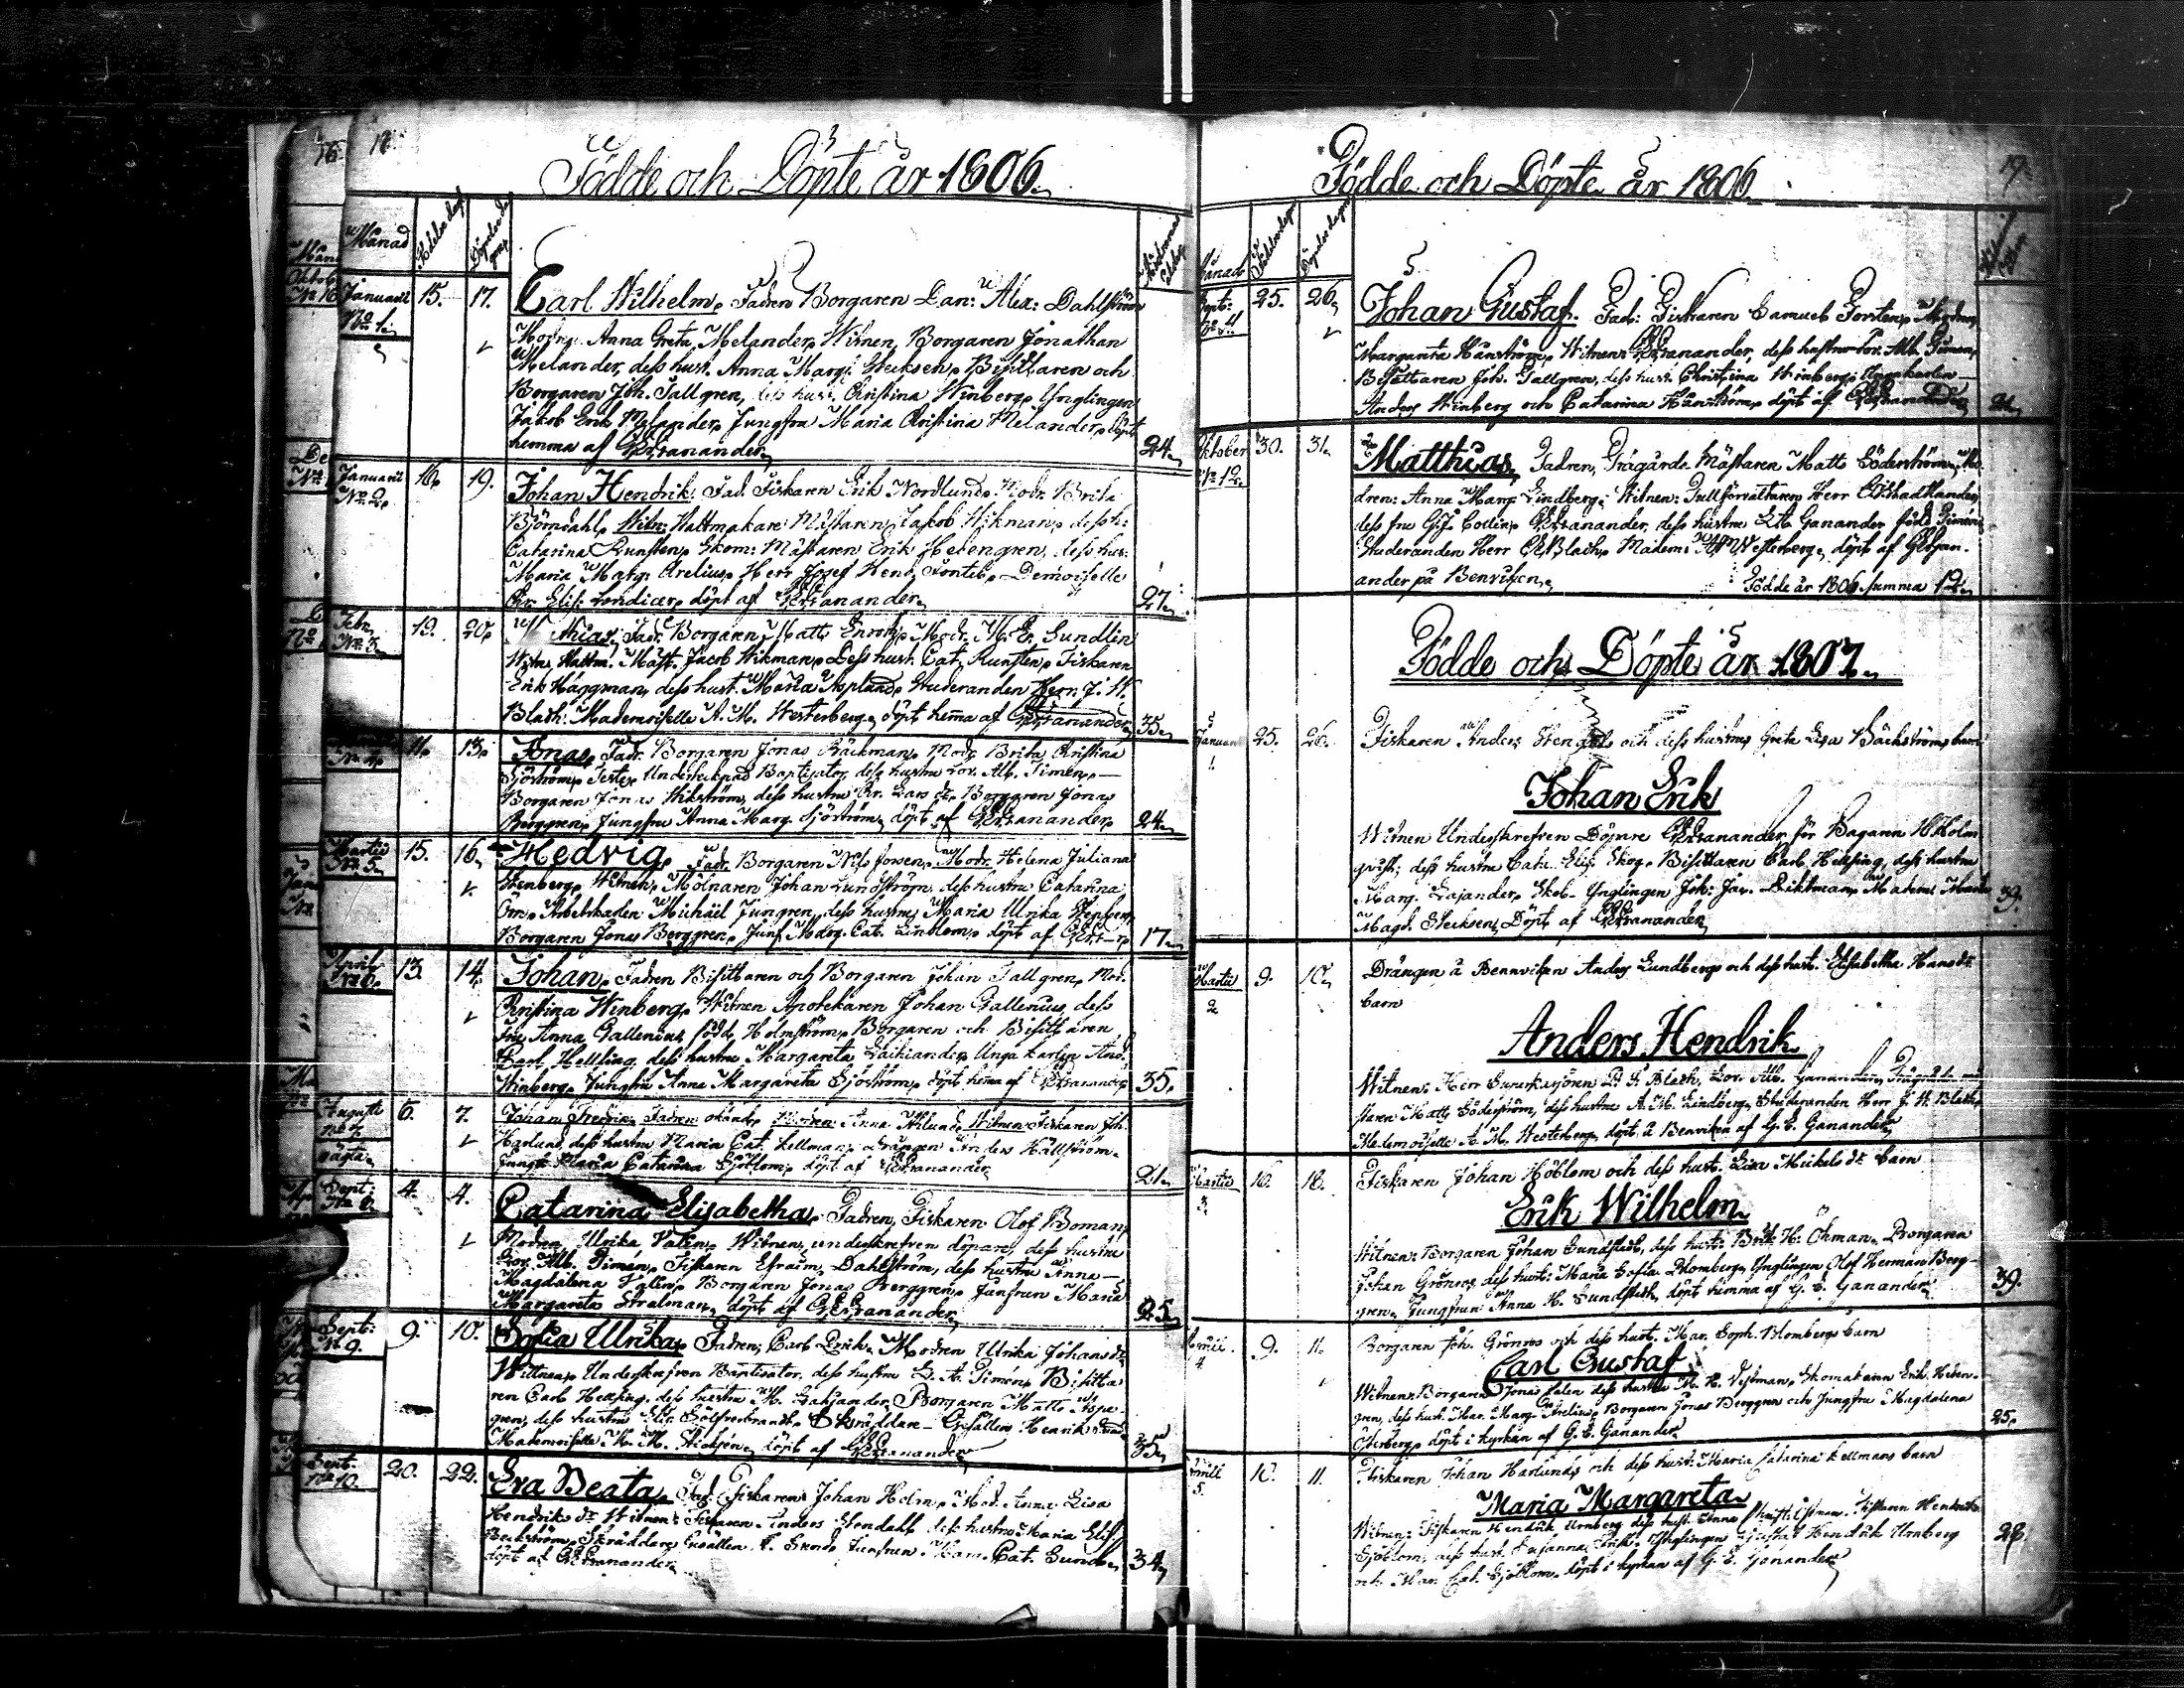 18.
Födde och Döpte år 1806.
Månad
Januarii 15. 17. Carl Wilhelm, Fadren Borgaren Dan: Alex: Dahlström
No 1. Modren Anna Greta Melander, Witnen, Borgaren Jonathan
Melander, dess hust. Anna Marg: Stecksen, Besittaren och
Borgaren Joh. Tallgren, dess hust. Christina Winberg, Ynglingen
Jakob Erik Melander, Jungfru Maria Christina Melander, döpt
hemma af G.E. Ganander. 24.
Januarii 16. 19. Johan Hendrik. Fad. Fiskaren Erik Nordlund. Modr. Brita
No 2. Björndahl, Witn: Hattmakare Mästaren Jakob Wikman, dess h:
Catarina Runsten, Skom: Mästaren Erik Hedengren, dess hus:
Maria Marg: Arelius, Herr Josef Hend. Fontel, Demoiselle
Chr. Elis: Londicer, döpt af G.E. Ganander. 27.
Febr. 19. 20. Mathias, Fadr. Borgaren Matts Enroth, Modr. M. E. Sundlin
No 3. Witn. Hattm. Mäst. Jacob Wikman, Dess hust. Cat. Runsten, Fiskaren
Erik Häggman, dess hust. Maria Asplund, Studeranden Herr J. H.
Bladh. Mademoiselle A. M. Westerberg, döpt hema af G.E. Ganander. 35.
No 4. 11. 13. Jonas, Fadr. Borgaren Jonas Bäckman, Modr. Brita Christina
Sjöström, Testes Undertecknad Baptisator, dess hustru Lov. Alb. Simén,
Borgaren Jonas Wikström, dess hustru Chr. Lars dr. Borgaren Jonas
Berggren, Jungfru Anna Marg. Sjöström, döpt af G.E. Ganander. 24.
Martii 15. 16. Hedvig, Fadr. Borgaren Nils Forsen, Modr. Helena Juliana
No 5. Stenberg, Witnen, Mölnaren Johan Lundström dess hustru Catarina
Orre, Arbetskarlen Michäel Jungren, dess hustru Maria Ulrika Stenberg
Borgaren Jonas Berggren, Junf. Marg. Cat. Lindblom, döpt af G.E.G—r. 17.
April 13. 14. Johan, Fadren Besittaren och Borgaren Johan Tallgren, Mod.
No 6. Christina Winberg, Witnen Apotekaren Johan Gallenius, dess
fru Anna Gallenius född Holmström, Borgaren och Besittaren
Carl Hellsing, dess hustru Margareta Laihiander, Unga karlen And.
Winberg, Jungfru Anna Margareta Sjöström, döpt hema af G.E. Ganander. 35.
Augusti 6. 7. Johan Fredric, Fadren okänd, Modren Anna Ahlund, Witnen Fiskaren Joh.
No 7. Harlund, dess hustru Maria Cat. Kellman, Drängen Anders Hällström,
oägta. Jungfr. Maria Catarina Sjöblom, döpt af G.E. Ganander 21.
Sept: 4. 4. Catarina Elisabetha, Fadren, Fiskaren Olof Boman,
No 8. Modren Ulrika Valin, Witnen, underskrefven döpare, dess hustru
Lov. Alb. Simén, Fiskaren Efraim Dahlström, dess hustru Anna
Magdalena Vallin, Borgaren Jonas Berggren, Junfrun Maria
Margareta Stralman, döpt af G.E. Ganander. 25.
Sept: 9. 10. Sofia Ulrika, Fadren, Carl Erik, Modren Ulrika Johans dr.
N 9. Wittnen, Underskrefven Baptisator, dess hustru L. A. Simén, Besitta
ren Carl Hellsing, dess hustru M. Laihiander, Borgaren Matts Aspe
gren, dess hustru Elis. Sölfverbrandt, Skräddare-Gesällen Henrik
Mademoiselle M. M. Stichsén, döpt af G.E. Ganander. 35.
Sept. 20. 22. Eva Beata, Fad. Fiskaren Johan Holm, Mod. Anna Lisa
No 10. Hendriks dr. Witnen: Fiskaren Anders Stendahl, dess hustru Maria Elis.
Beckström, Skräddare Gesällen Junfrun Mar. Cat. Sund
döpt af G.E. Ganander. 34.
19.
Födde och Döpte år 1806.
Sept: 25. 26. Johan Gustaf. Fad: Fiskaren Samuel Forsten, Modren,
No 11. Margareta Hanström, Witnen G.E. Ganander, dess hustru Lov. Alb. Simén,
Besittaren Joh. Tallgren, dess hust. Christina Winberg, Ungakarlen
Anders Winberg och Catarina Hanström, döpt af G.E. Ganander. 21.
Oktober 30. 31. Matthias, Fadren, Trägårds Mästaren Matts Söderström, Mo
No 12. dren: Anna Marg. Lindberg, Witnen: Tullförvaltaren Herr
dess fru Collin, G.E. Ganander, dess hustru L.A. Ganander född Simén,
Studeranden Herr Bladh, Madem: A.M. Westerberg, döpt af G.E. Gan-
ander på Benviken. Födde år 1806 summa 12.
Födde och Döpte år 1807.
Januari 25. 26. Fiskaren Anders Stendahl och dess hustru Greta Lisa Bäckström barn
1. Johan Erik
Witnen Underskrefven Döpare G.E. Ganander för Bagaren H. Holm
qvist, dess hustru Catr. Elis. Skog, Besittaren Carl Hellsing, dess hustru
Marg. Lajander, Skol-Ynglingen Joh: Jac. Dikman, Madem. Maria
Magd. Stecksen, Döpt af G.E. Ganander 39.
Martii 9. 10. Drängen å Bennviken Anders Lundberg och dess hust. Elisabetha Hans dr.
2 barn
Anders Hendrik.
Witnen: Herr Superkargören P. J. Bladh, Lov. Alb. Ganander, Trägårds mä
staren Matts Söderström, dess hustru A. M. Lindberg, Studeranden Herr J. H. Bladh,
Mademoiselle A. M. Westerberg, döpt å Benviken af G. E. Ganander
Martii 16. 18. Fiskaren Johan Höblom och dess hust. Lisa Mickels dr. barn
3. Erik Wilhelm.
Witnen: Borgaren Johan Sundstedt, dess hust: Brit. H: Öhman, Borgaren
Johan Grönros, dess hust: Maria Sofia Blomberg, Ynglingen Olof Herman Berg-
gren, Jungfrun Anna H. Sundstedt, döpt hemma af G. E. Ganander 39.
Aprili 9. 11. Borgaren Joh. Grönros och dess hust. Mar. Soph. Blomberg barn
4 Carl Gustaf.
Witnen: Borgaren Jonas Falen dess hustru M. H. Vestman, Skomakaren Erik Heden-
gren, dess hust. Mar. Marg. Arelius, Borgaren Jonas Berggren och Jungfru Magdalena
Österberg, döpt i kyrkan af G. E. Ganander 25.
Aprill 10. 11. Fiskaren Johan Harlund och dess hust: Maria Catarina Kellmans barn
5. Maria Margareta
Witnen: Fiskaren Hendrik Urnberg dess hust. Anna Fiskaren Hendrik
Sjöblom, dess hust. Susanna Ynglingen Gustaf Hendrik Urnberg
och Mar. Cat. Sjöblom, döpt i kyrkan af G. E. Ganander 28.